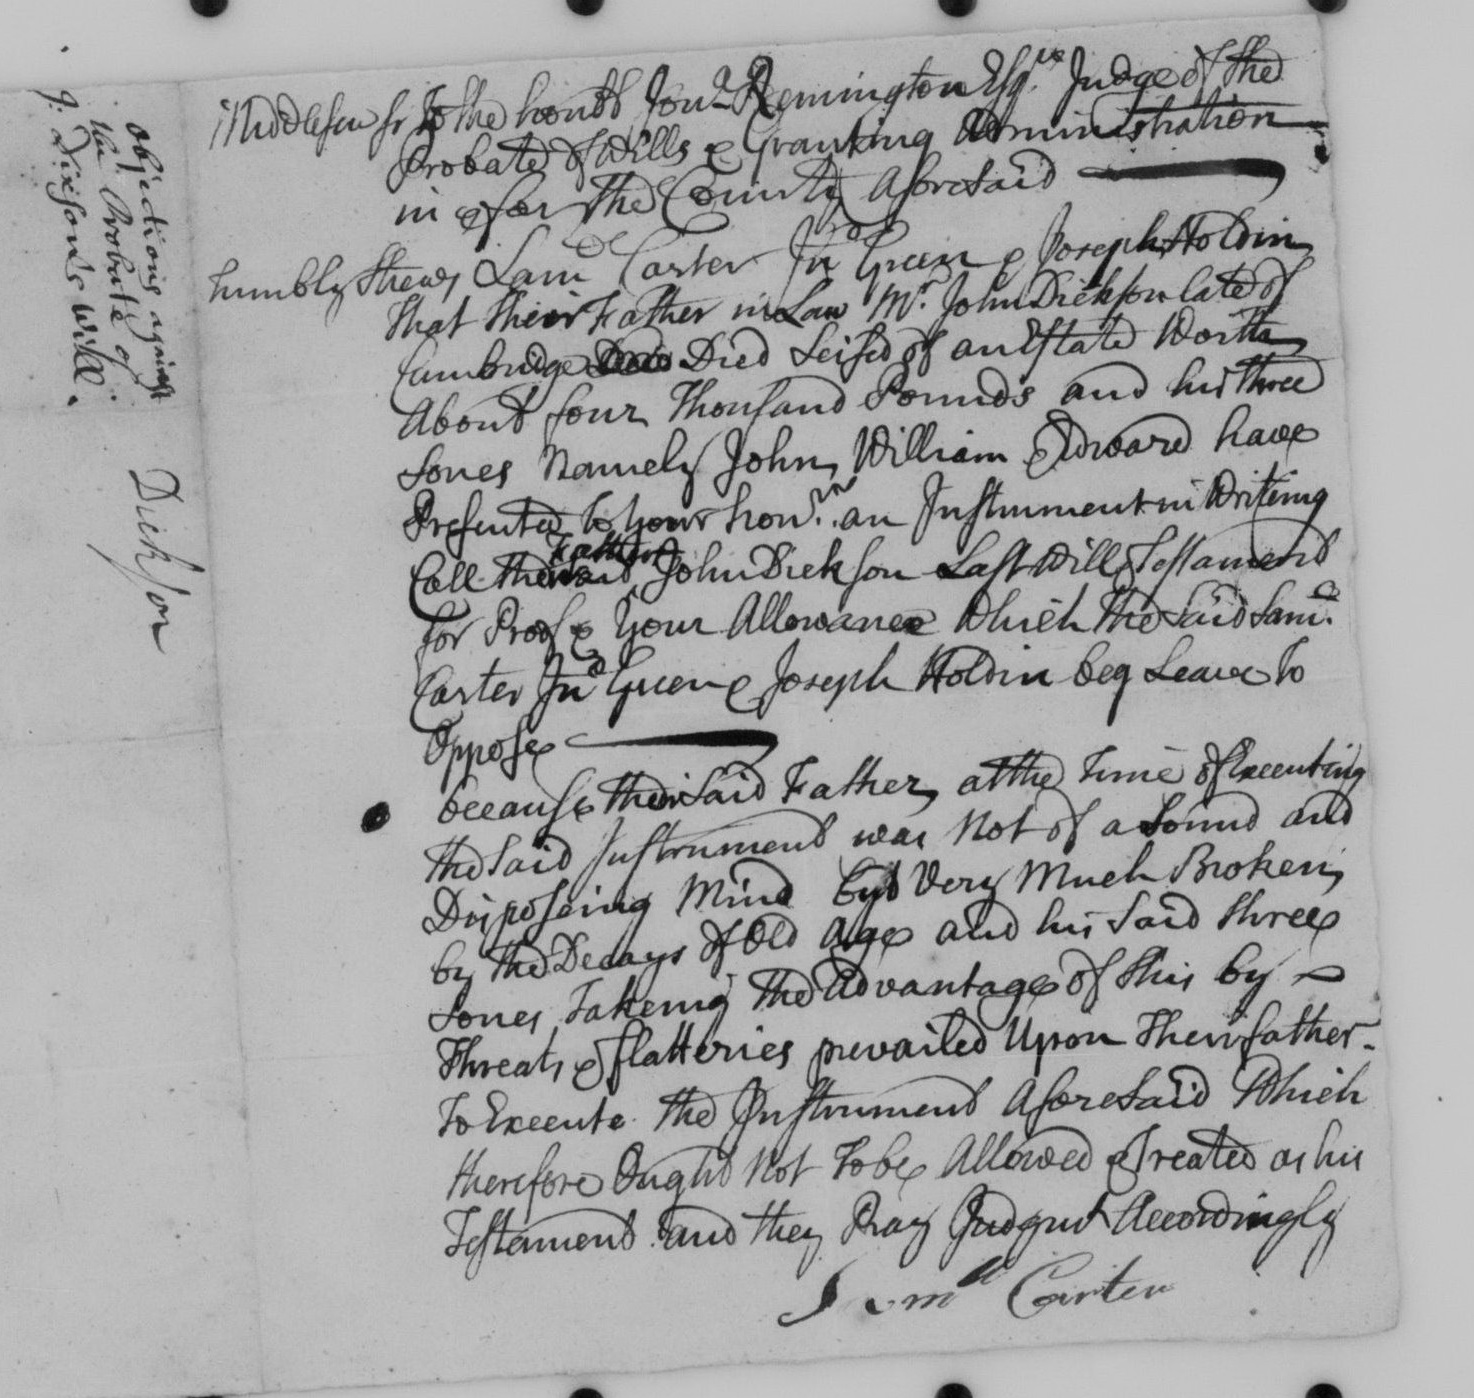 Objections against
the Probate of
J. Dixson's Will.
Dickson
Middlesex ss To the honbl Jonª Remington Esqʳᵉ Judge of the
Probate of Wills & Granting Administration
in & for the County Aforesaid
humbly Shews Samˡ Carter Jnº Green & Joseph Holdin
that their Father in Law Mʳ John Dickson late of
Cambridge Died Seised of an Estate Worth
About four Thousand Pounds and his three
Sones Namely John, William & Edward have
Presented to Your honʳ an Instrument in Writeing
Call their Said Father John Dickson Last Will & Testament
for Proof & Your Allowance Which the Said Samˡ
Carter Jnº Green & Joseph Holdin beg Leave to
Oppose
because their Said Father at the Time of Executing
the Said Instrument was Not of a Sound and
Disposeing Mind but Very Much Broken
by the Decays of Old Age and his Said three
Sones Takeing the Advantage of this by
Threats & flatteries prevailed Upon Their father
To Execute the Instrument Aforesaid Which
therefore Ought Not To be Allowed & Treated as his
Testament and they Pray Judgmt Accordingly
Samˡˡ Carter